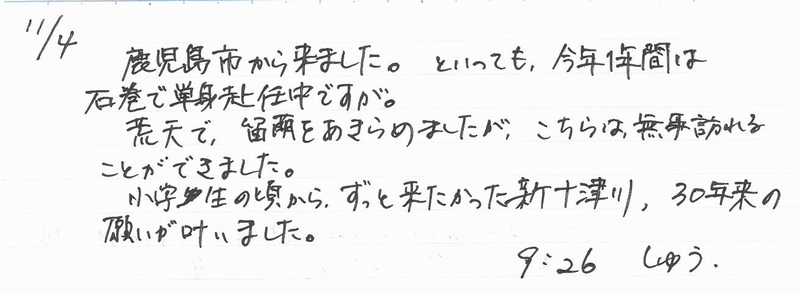 11/4
鹿児島市から来ました。といっても、今年1年間は
石巻で単身赴任中ですが。
荒天で、留萌をあきらめましたが、こちらは、無事訪れる
ことができました。
小学生の頃から、ずっと来たかった新十津川、30年来の
願いが叶いました。
9:26 しゅう.